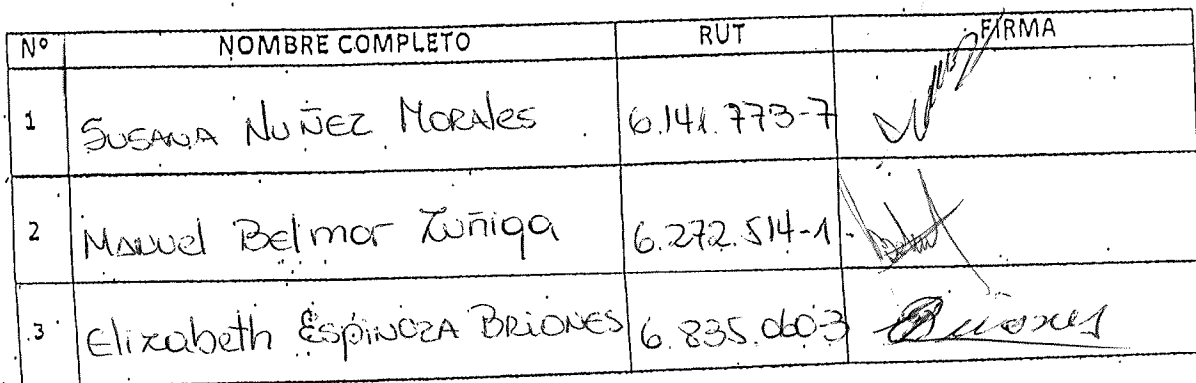 Nº NOMBRE COMPLETO RUT FIRMA
1 SUSANA NUÑEZ MORALES 6.141.773-7
2 Manuel Belmar Zuñiga 6.272.514-1
3 Elizabeth Espinoza Briones 6.835.060-3 Briones